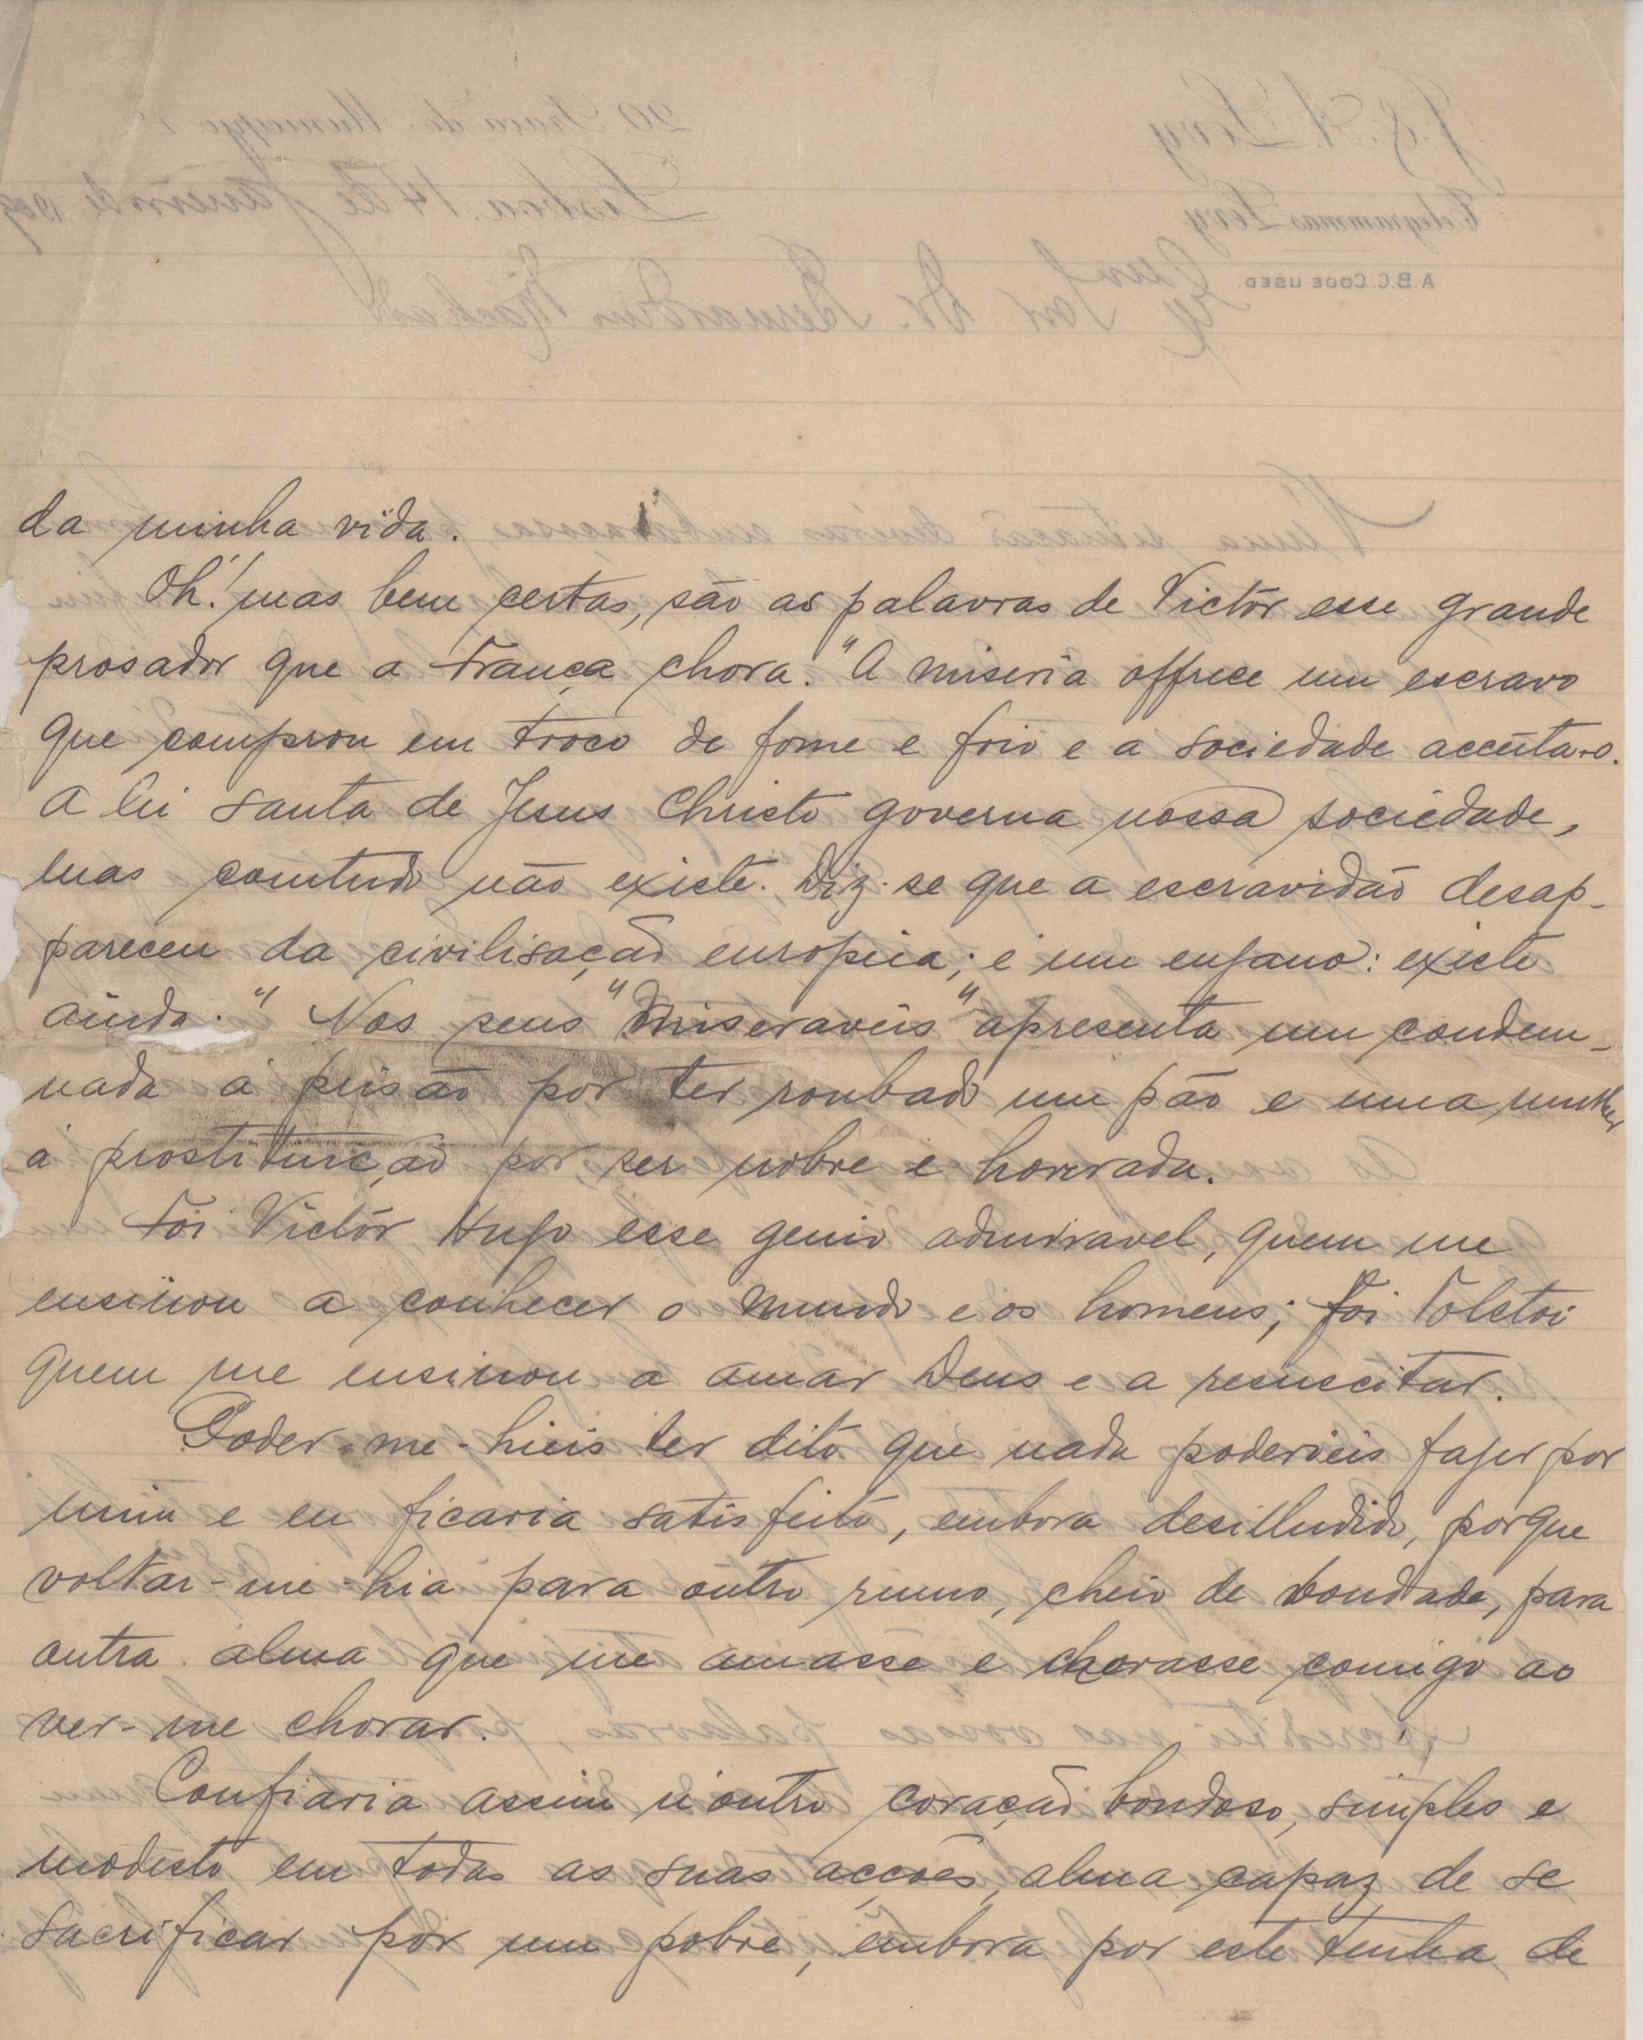 da minha vida.
Oh! mas bem certas, são as palavras de Victôr esse grande
prosador que a França chora. "A miseria offrece um escravo
que comprou em troco de fome e frio e a sociedade acceita-o.
A lei santa de Jesus Christo governa nossa sociedade,
mas comtudo não existe. Diz-se que a escravidão desap-
pareceu da civilisação europeia; é um engano: existe
ainda." Nos seus "Miseraveis" apresenta um condem-
nado á prisão por ter roubado um pão e uma mulher
á prostituição por ser nobre e honrada.
Foi Victôr Hugo esse genio admiravel, quem me
ensinou a conhecer o mundo e os homens; foi Tolstoi
quem me ensinou a amar Deus e a resuscitar.
Poder-me-hieis ter dito que nada poderieis fazer por
mim e eu ficaria satisfeito, embora desilludido, porque
voltar-me-hia para outro rumo, cheio de bondade, para
outra alma que me amasse e chorasse comigo ao
ver-me chorar.
Confiaria assim n'outro coração bondoso, simples e
modesto em todas as suas acções, alma capaz de se
sacrificar por um pobre, embora por este tenha de